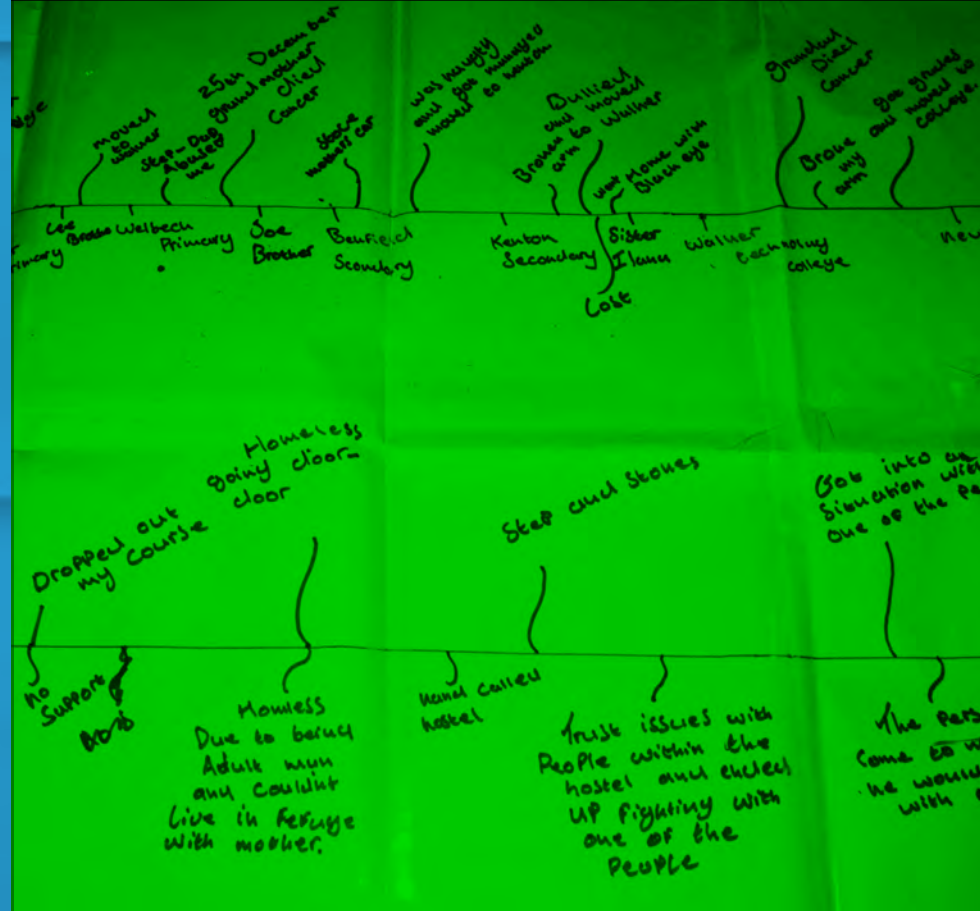 moved
to
walker
Step-Dad
Abused
me
25th December
grandmother
died
Cancer
Stole
mothers car
was naughty
and got
moved to
Bullied
and moved
to Walker
Broke
arm
Home with
Black eye
Grandad
Died
Cancer
Broke
my
arm
got grades
and moved to
college
Brother
Welbech
Primary
Joe
Brother
Benfield
Scondary
Kenton
Secondary
Lost
Sister
Walker
technology
college
new
Homeless
going door-
door
Dropped out
my course
Step and Stones
Got into an
Situation with
one of the Pe
no
Support
Homless
Due to being
Adult man
any couldnt
Live in Refuge
with mother.
hand called
hostel
Trust issues with
People within the
hostel and ended
UP Fighting with
one of the
People
The Pers
Come to
he would
with